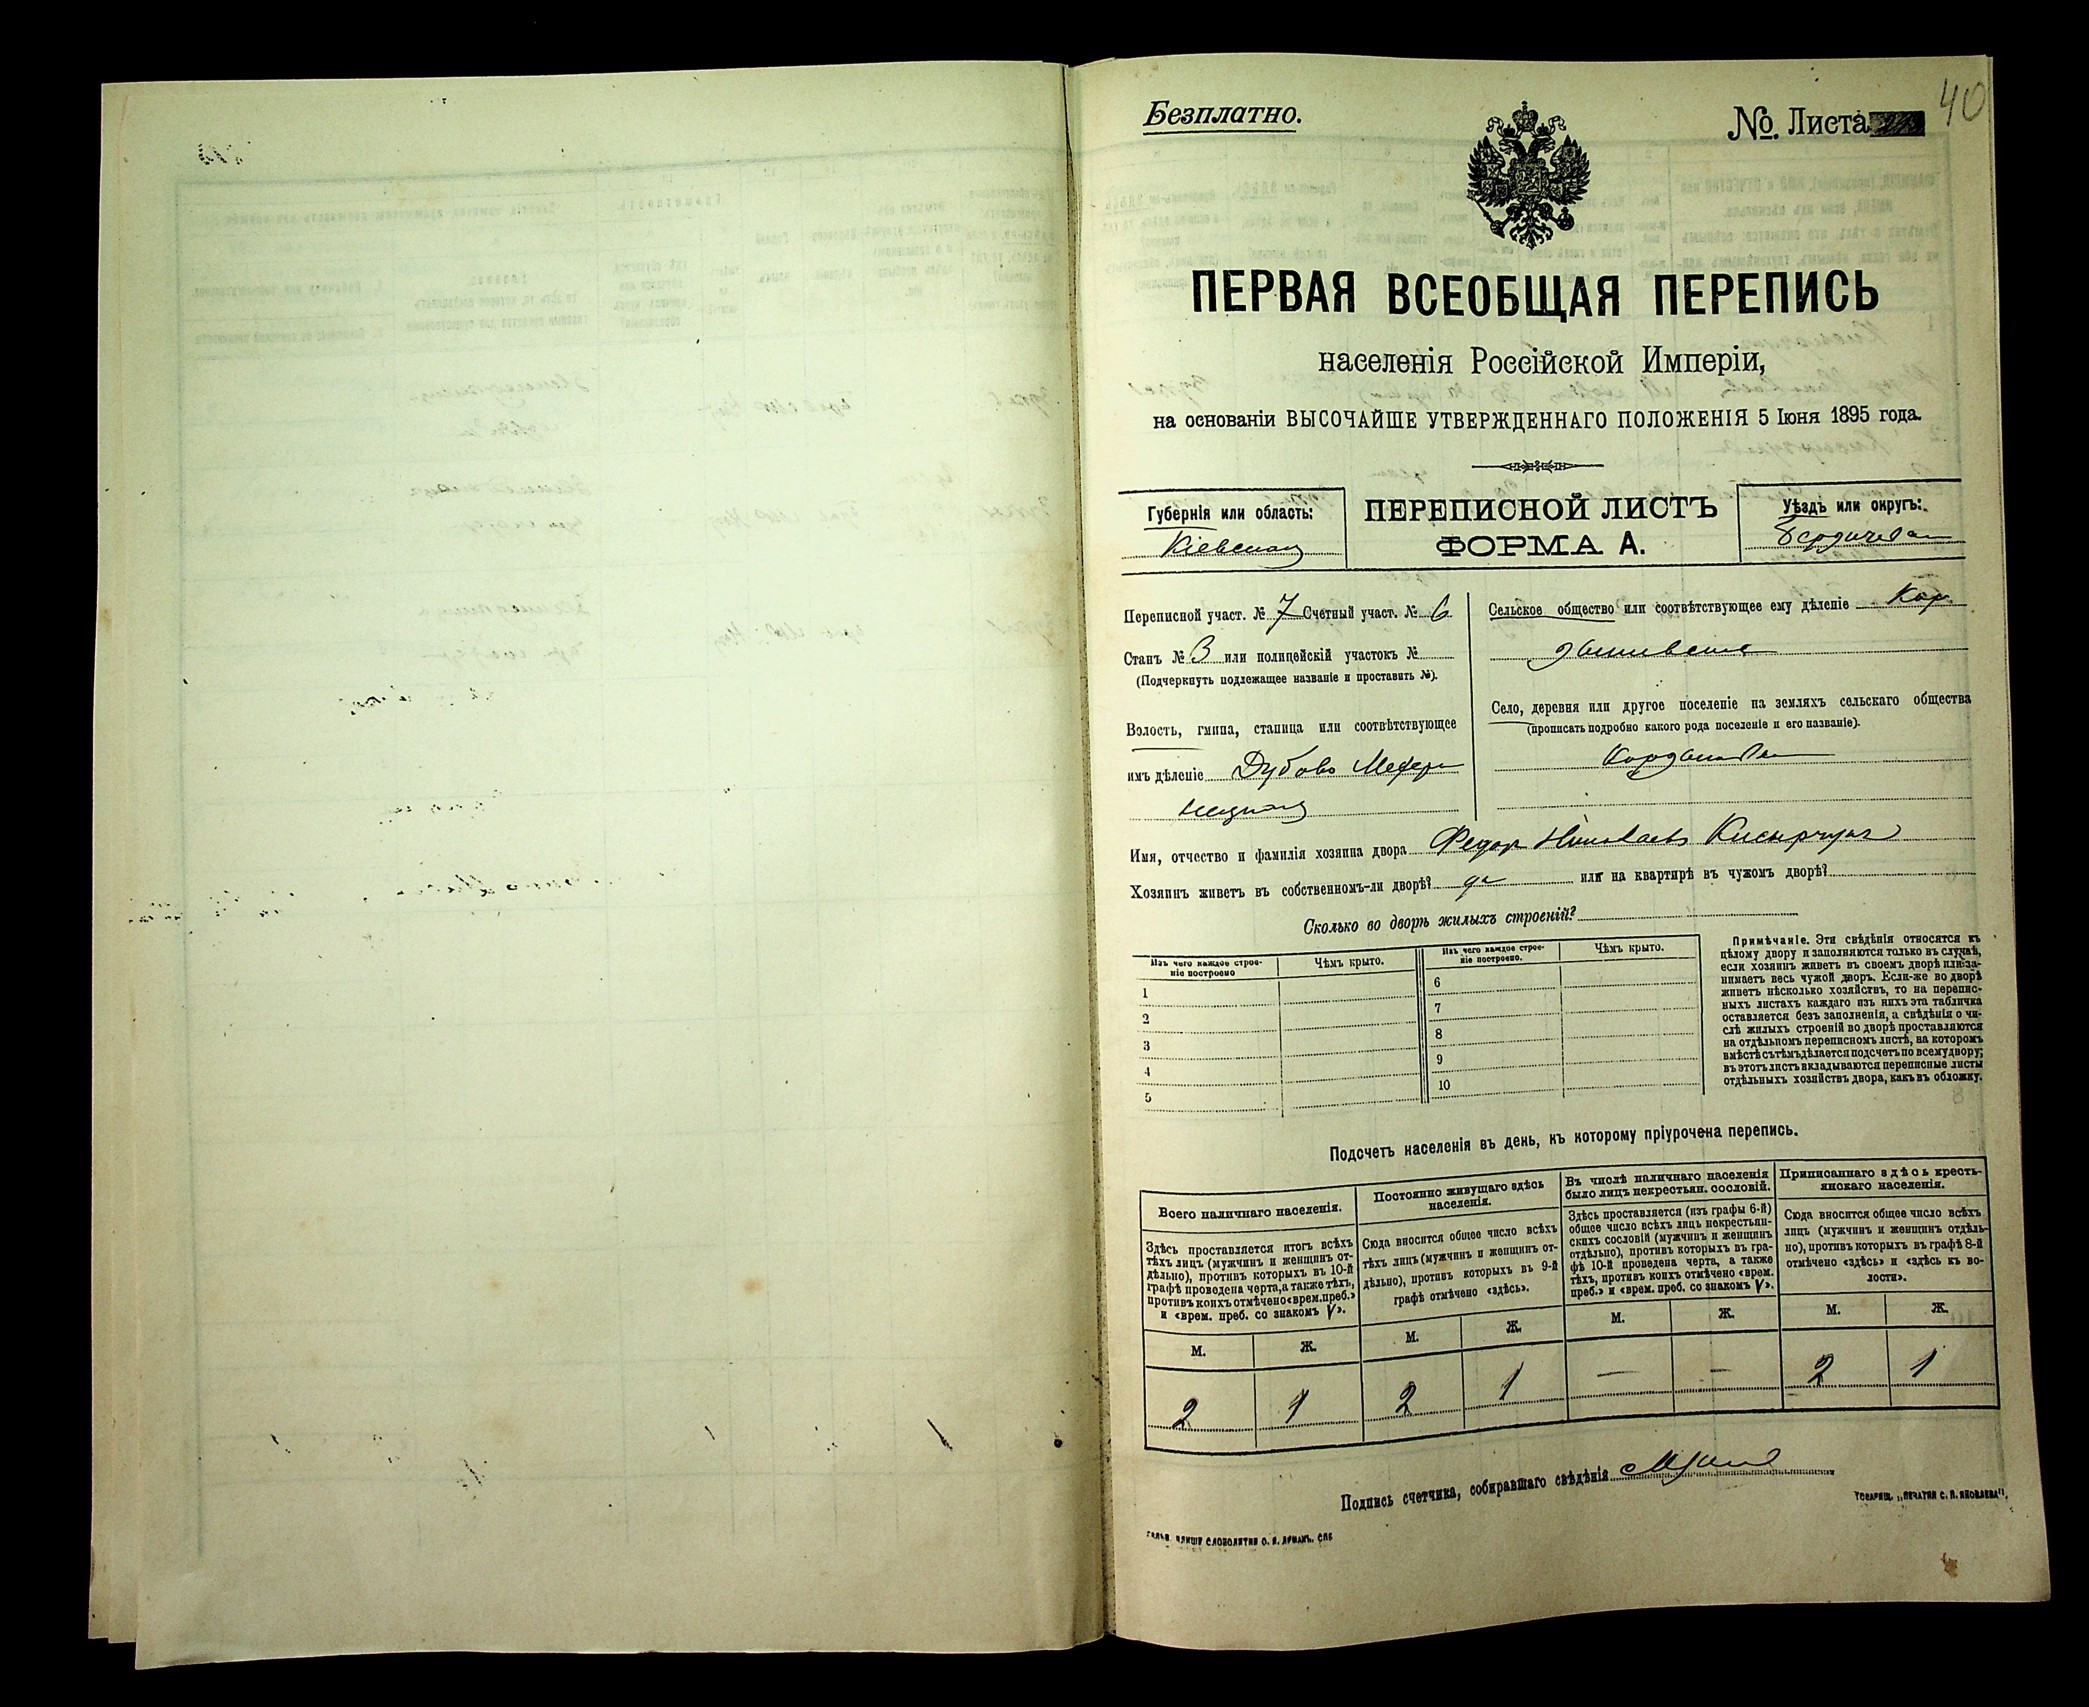 40
Безплатно.
№. Листа
ПЕРВАЯ ВСЕОБЩАЯ ПЕРЕПИСЬ
населенія Россійской Имперіи,
на основаніи ВЫСОЧАЙШЕ УТВЕРЖДЕННАГО ПОЛОЖЕНІЯ 5 Іюня 1895 года.
Губернія или область:
Кіевская
ПЕРЕПИСНОЙ ЛИСТЪ
ФОРМА А.
Уѣздъ или округъ:
Бердичевск
Переписной участ. № 7 Счетный участ. № 6
Станъ № 3 или полицейскій участокъ №
(Подчеркнуть подлежащее названіе и проставить №).
Волость, гмина, станица или соотвѣтствующее
имъ дѣленіе Дубово Межер
Сельское общество или соотвѣтствующее ему дѣленіе Кор
дышевское
Село, деревня или другое поселеніе на земляхъ сельскаго общества
(прописать подробно какого рода поселеніе и его названіе).
Кордышевка
Имя, отчество и фамилія хозяина двора Федор Николаевъ
Хозяинъ живетъ въ собственномъ-ли дворѣ? да или на квартирѣ въ чужомъ дворѣ?
Сколько во дворѣ жилыхъ строеній?
Изъ чего каждое строе-
ніе построено
Чѣмъ крыто.
Изъ чего каждое строе-
ніе построено.
Чѣмъ крыто.
1
2
3
4
5
6
7
8
9
10
Примѣчаніе. Эти свѣдѣнія относятся къ
цѣлому двору и заполняются только въ случаѣ,
если хозяинъ живетъ въ своемъ дворѣ или за-
нимаетъ весь чужой дворъ. Если-же во дворѣ
живетъ нѣсколько хозяйствъ, то на перепис-
ныхъ листахъ каждаго изъ нихъ эта табличка
оставляется безъ заполненія, а свѣдѣнія о чи-
слѣ жилыхъ строеній во дворѣ проставляются
на отдѣльномъ переписномъ листѣ, на которомъ
вмѣстѣ съ тѣмъ дѣлается подсчетъ по всему двору;
въ этотъ листъ вкладываются переписные листы
отдѣльныхъ хозяйствъ двора, какъ въ обложку.
Подсчетъ населенія въ день, къ которому пріурочена перепись.
Всего наличнаго населенія.
Здѣсь проставляется итогъ всѣхъ
тѣхъ лицъ (мужчинъ и женщинъ от-
дѣльно), противъ которыхъ въ 10-й
графѣ проведена черта, а также тѣхъ,
противъ коихъ отмѣчено «врем. преб.»
и «врем. преб. со знакомъ V».
М. Ж.
2 1
Постоянно живущаго здѣсь
населенія.
Сюда вносится общее число всѣхъ
тѣхъ лицъ (мужчинъ и женщинъ от-
дѣльно), противъ которыхъ въ 9-й
графѣ отмѣчено «здѣсь».
М. Ж.
2 1
Въ числѣ наличнаго населенія
было лицъ некрестьян. сословій.
Здѣсь проставляется (изъ графы 6-й)
общее число всѣхъ лицъ некрестьян-
скихъ сословій (мужчинъ и женщинъ
отдѣльно), противъ которыхъ въ гра-
фѣ 10-й проведена черта, а также
тѣхъ, противъ коихъ отмѣчено «врем.
преб.» и «врем. преб. со знакомъ V».
М. Ж.
— —
Приписаннаго здѣсь кресть-
янскаго населенія.
Сюда вносится общее число всѣхъ
лицъ (мужчинъ и женщинъ отдѣль-
но), противъ которыхъ въ графѣ 8-й
отмѣчено «здѣсь» и «здѣсь къ во-
лости».
М. Ж.
2 1
Подпись счетчика, собиравшаго свѣдѣнія
Товарищ. „Печатня С. П. Яковлева".